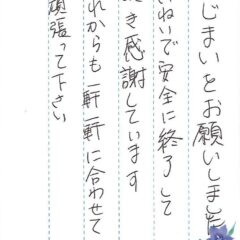 じまいをお願いしました
いねいで安全に終了して
き感謝しています
れからも一軒一軒に合わせて
頑張って下さい